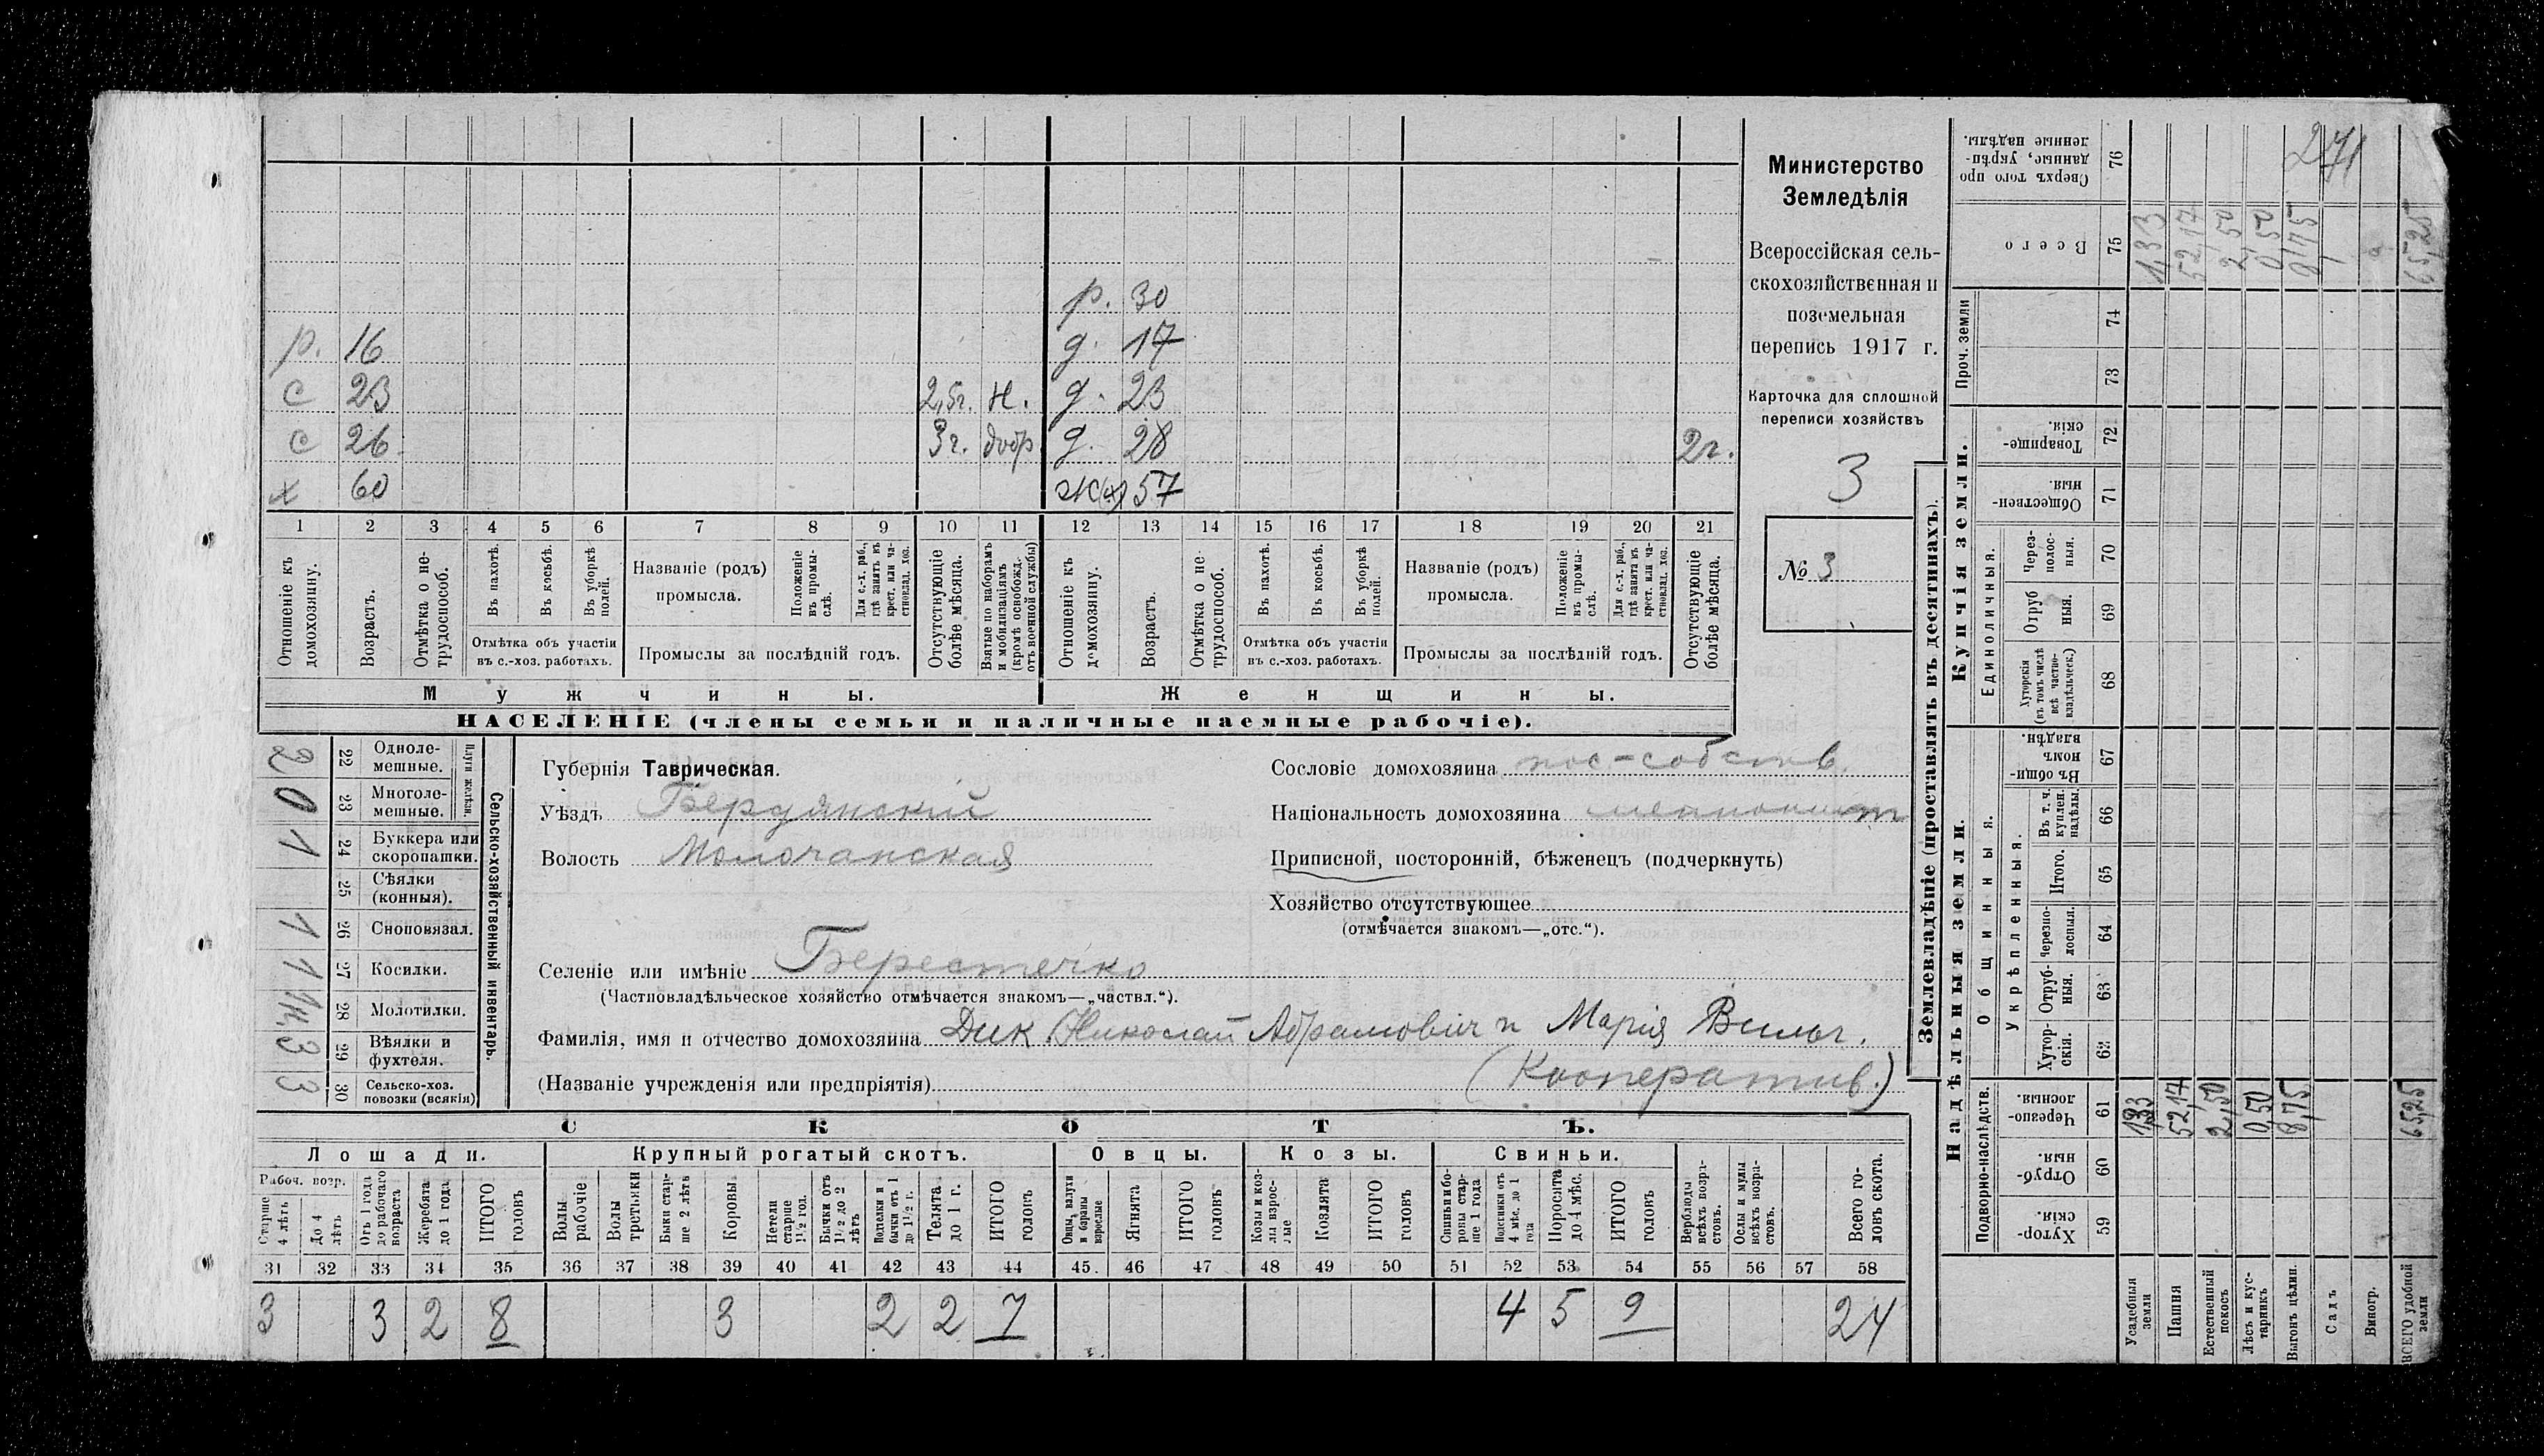 р. 30
р. 16 д. 17
с 23 2,5г. н. д. 23
с 26 3г. добр д. 28 2г.
х 60 ж(х) 57
1 2 3 4 5 6 7 8 9 10 11 12 13 14 15 16 17 18 19 20 21
Отношеніе къ домохозяину.
Возрастъ.
Отмѣтка о не-трудоспособ.
Въ пахотѣ.
Въ косьбѣ.
Въ уборкѣ полей.
Отмѣтка объ участіи въ с.-хоз. работахъ.
Названіе (родъ) промысла.
Положеніе въ промы-слѣ.
Для с.-х. раб., гдѣ занятъ въ крест. или ча-стновлад. хоз.
Промыслы за послѣдній годъ.
Отсутствующіе болѣе мѣсяца.
Взятые по наборамъ и мобилизаціямъ (кромѣ освобожд. отъ военной службы)
Отношеніе къ домохозяину.
Возрастъ.
Отмѣтка о не-трудоспособ.
Въ пахотѣ.
Въ косьбѣ.
Въ уборкѣ полей.
Отмѣтка объ участіи въ с.-хоз. работахъ.
Названіе (родъ) промысла.
Положеніе въ промы-слѣ.
Для с.-х. раб., гдѣ занята въ крест. или ча-стновлад. хоз.
Промыслы за послѣдній годъ.
Отсутствующіе болѣе мѣсяца.
Мужчины.
Женщины.
НАСЕЛЕНІЕ (члены семьи и наличные наемные рабочіе).
Министерство
Земледѣлія
Всероссійская сель-
скохозяйственная и
поземельная
перепись 1917 г.
Карточка для сплошной
переписи хозяйствъ
3
№ 3
Сельско-хозяйственный инвентарь.
Плуги желѣзн.
2 22 Одноле-мешные.
0 23 Многоле-мешные.
1 24 Буккера или скоропашки.
25 Сѣялки (конныя).
1 26 Сноповязал.
1 27 Косилки.
1н. 28 Молотилки.
3 29 Вѣялки и фухтеля.
3 30 Сельско-хоз. повозки (всякія)
Губернія Таврическая.
Уѣздъ Бердянскій
Волость Молочанская
Сословіе домохозяина пос-собств.
Національность домохозяина меннонит
Приписной, посторонній, бѣженецъ (подчеркнуть)
Хозяйство отсутствующее
(отмѣчается знакомъ—„отс.“).
Селеніе или имѣніе Берестечко
(Частновладѣльческое хозяйство отмѣчается знакомъ—„частвл.“).
Фамилія, имя и отчество домохозяина Дик Николай Абрамович и Марія Вильг.
(Названіе учрежденія или предпріятія) (Кооператив.)
СКОТЪ.
Лошади. Крупный рогатый скотъ. Овцы. Козы. Свиньи.
Рабоч. возр.
Старше 4 лѣтъ
До 4 лѣтъ
Отъ 1 года до рабочаго возраста
Жеребята до 1 года
ИТОГО головъ
Волы рабочіе
Волы третьяки
Быки стар-ше 2 лѣтъ
Коровы
Нетели старше 1½ год.
Бычки отъ 1½ до 2 лѣтъ
Подтелки и бычки отъ 1 до 1½ г.
Телята до 1 г.
ИТОГО головъ
Овцы, валухи и бараны взрослые
Ягнята
ИТОГО головъ
Козы и коз-лы взрос-лые
Козлята
ИТОГО головъ
Свиньи и бо-ровы стар-ше 1 года
Подсвинки отъ 4 мѣс. до 1 года
Поросята до 4 мѣс.
ИТОГО головъ
Верблюды всѣхъ возра-стовъ.
Ослы и мулы всѣхъ возра-стовъ.
Всего го-ловъ скота.
31 32 33 34 35 36 37 38 39 40 41 42 43 44 45. 46 47 48 49 50 51 52 53 54 55 56 57 58
3 3 2 8 3 2 2 7 4 5 9 24
Землевладѣніе (проставлять въ десятинахъ).
Надѣльныя земли.
Купчія земли.
Проч. земли
Подворно-наслѣдств.
Общинныя.
Укрѣпленныя.
Единоличныя.
Сверхъ того про данные, укрѣп-ленные надѣлы. 76
271
Всего 75 1,33 52,17 2,50 0,50 8,75 65,25
74
73
Товарище-скія. 72
Обществен-ныя. 71
Через-полос-ныя. 70
Отруб ныя. 69
Хуторскія (въ томъ числѣ всѣ частно-владѣльческ.) 68
Въ общин-номъ владѣн. 67
Въ т. ч. куплен. надѣлы. 66
Итого. 65
Черезпо-лосныя. 64
Отруб-ныя. 63
Хутор-скія. 62
Черезпо-лосныя. 61 1,33 52,17 2,50 0,50 8,75 65,25
Отруб-ныя. 60
Хутор-скія. 59
Усадебныя земли
Пашня
Естественный покосъ
Лѣсъ и кус-тарникъ
Выгонъ цѣлин.
Садъ
Виногр.
ВСЕГО удобной земли